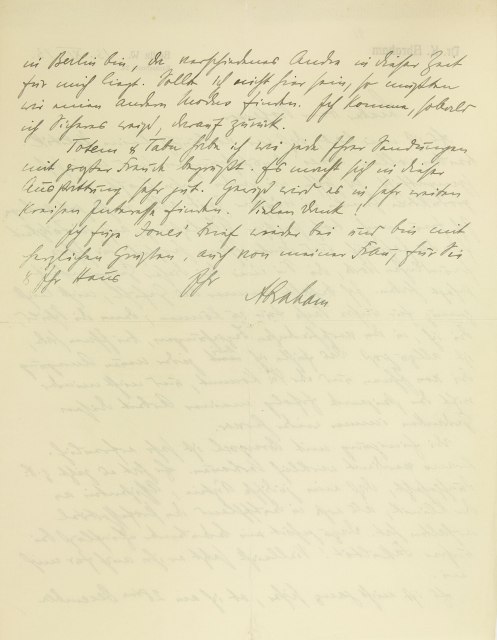 in Berlin bin, da verschiedenes Andre in dieser Zeit
für mich liegt. Sollte ich nicht hier sein, so müßten
wir einen andern Modus finden. Ich komme, sobald
ich Sicheres weiß, darauf zurück.
Totem & Tabu habe ich wie jede Ihrer Sendungen
mit großer Freude begrüßt. Es macht sich in dieser
Ausstattung sehr gut. Gewiß wird es in sehr weiten
Kreisen Interesse finden. Vielen Dank!
Ich füge Jones' Brief wieder bei und bin mit
herzlichen Grüßen, auch von meiner Frau, für Sie
& Ihr Haus
Ihr
Abraham